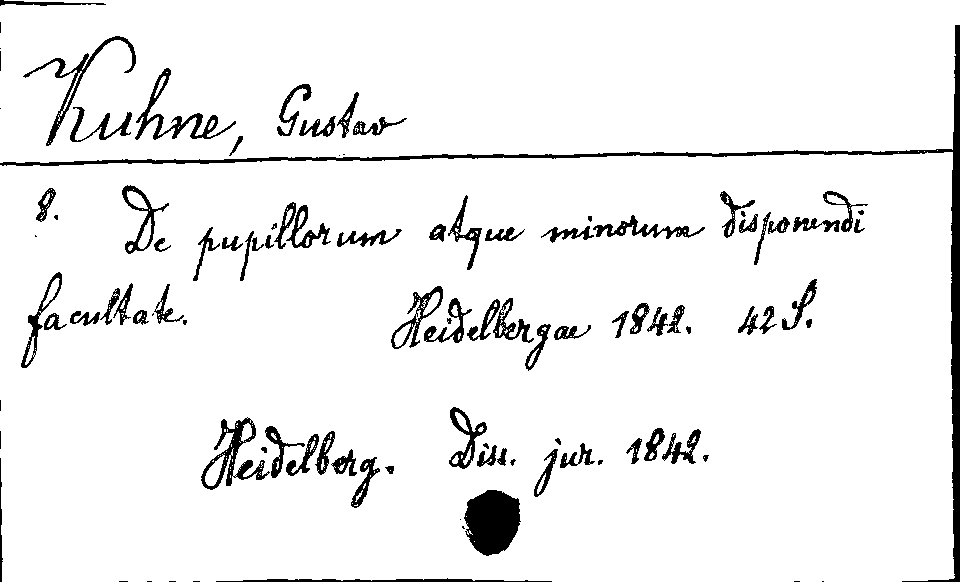 Kuhne, Gustav
8. De pupillorum atque minorum disponendi
facultate. Heidelbergae 1842. 42 S.
Heidelberg. Diss. jur. 1842.